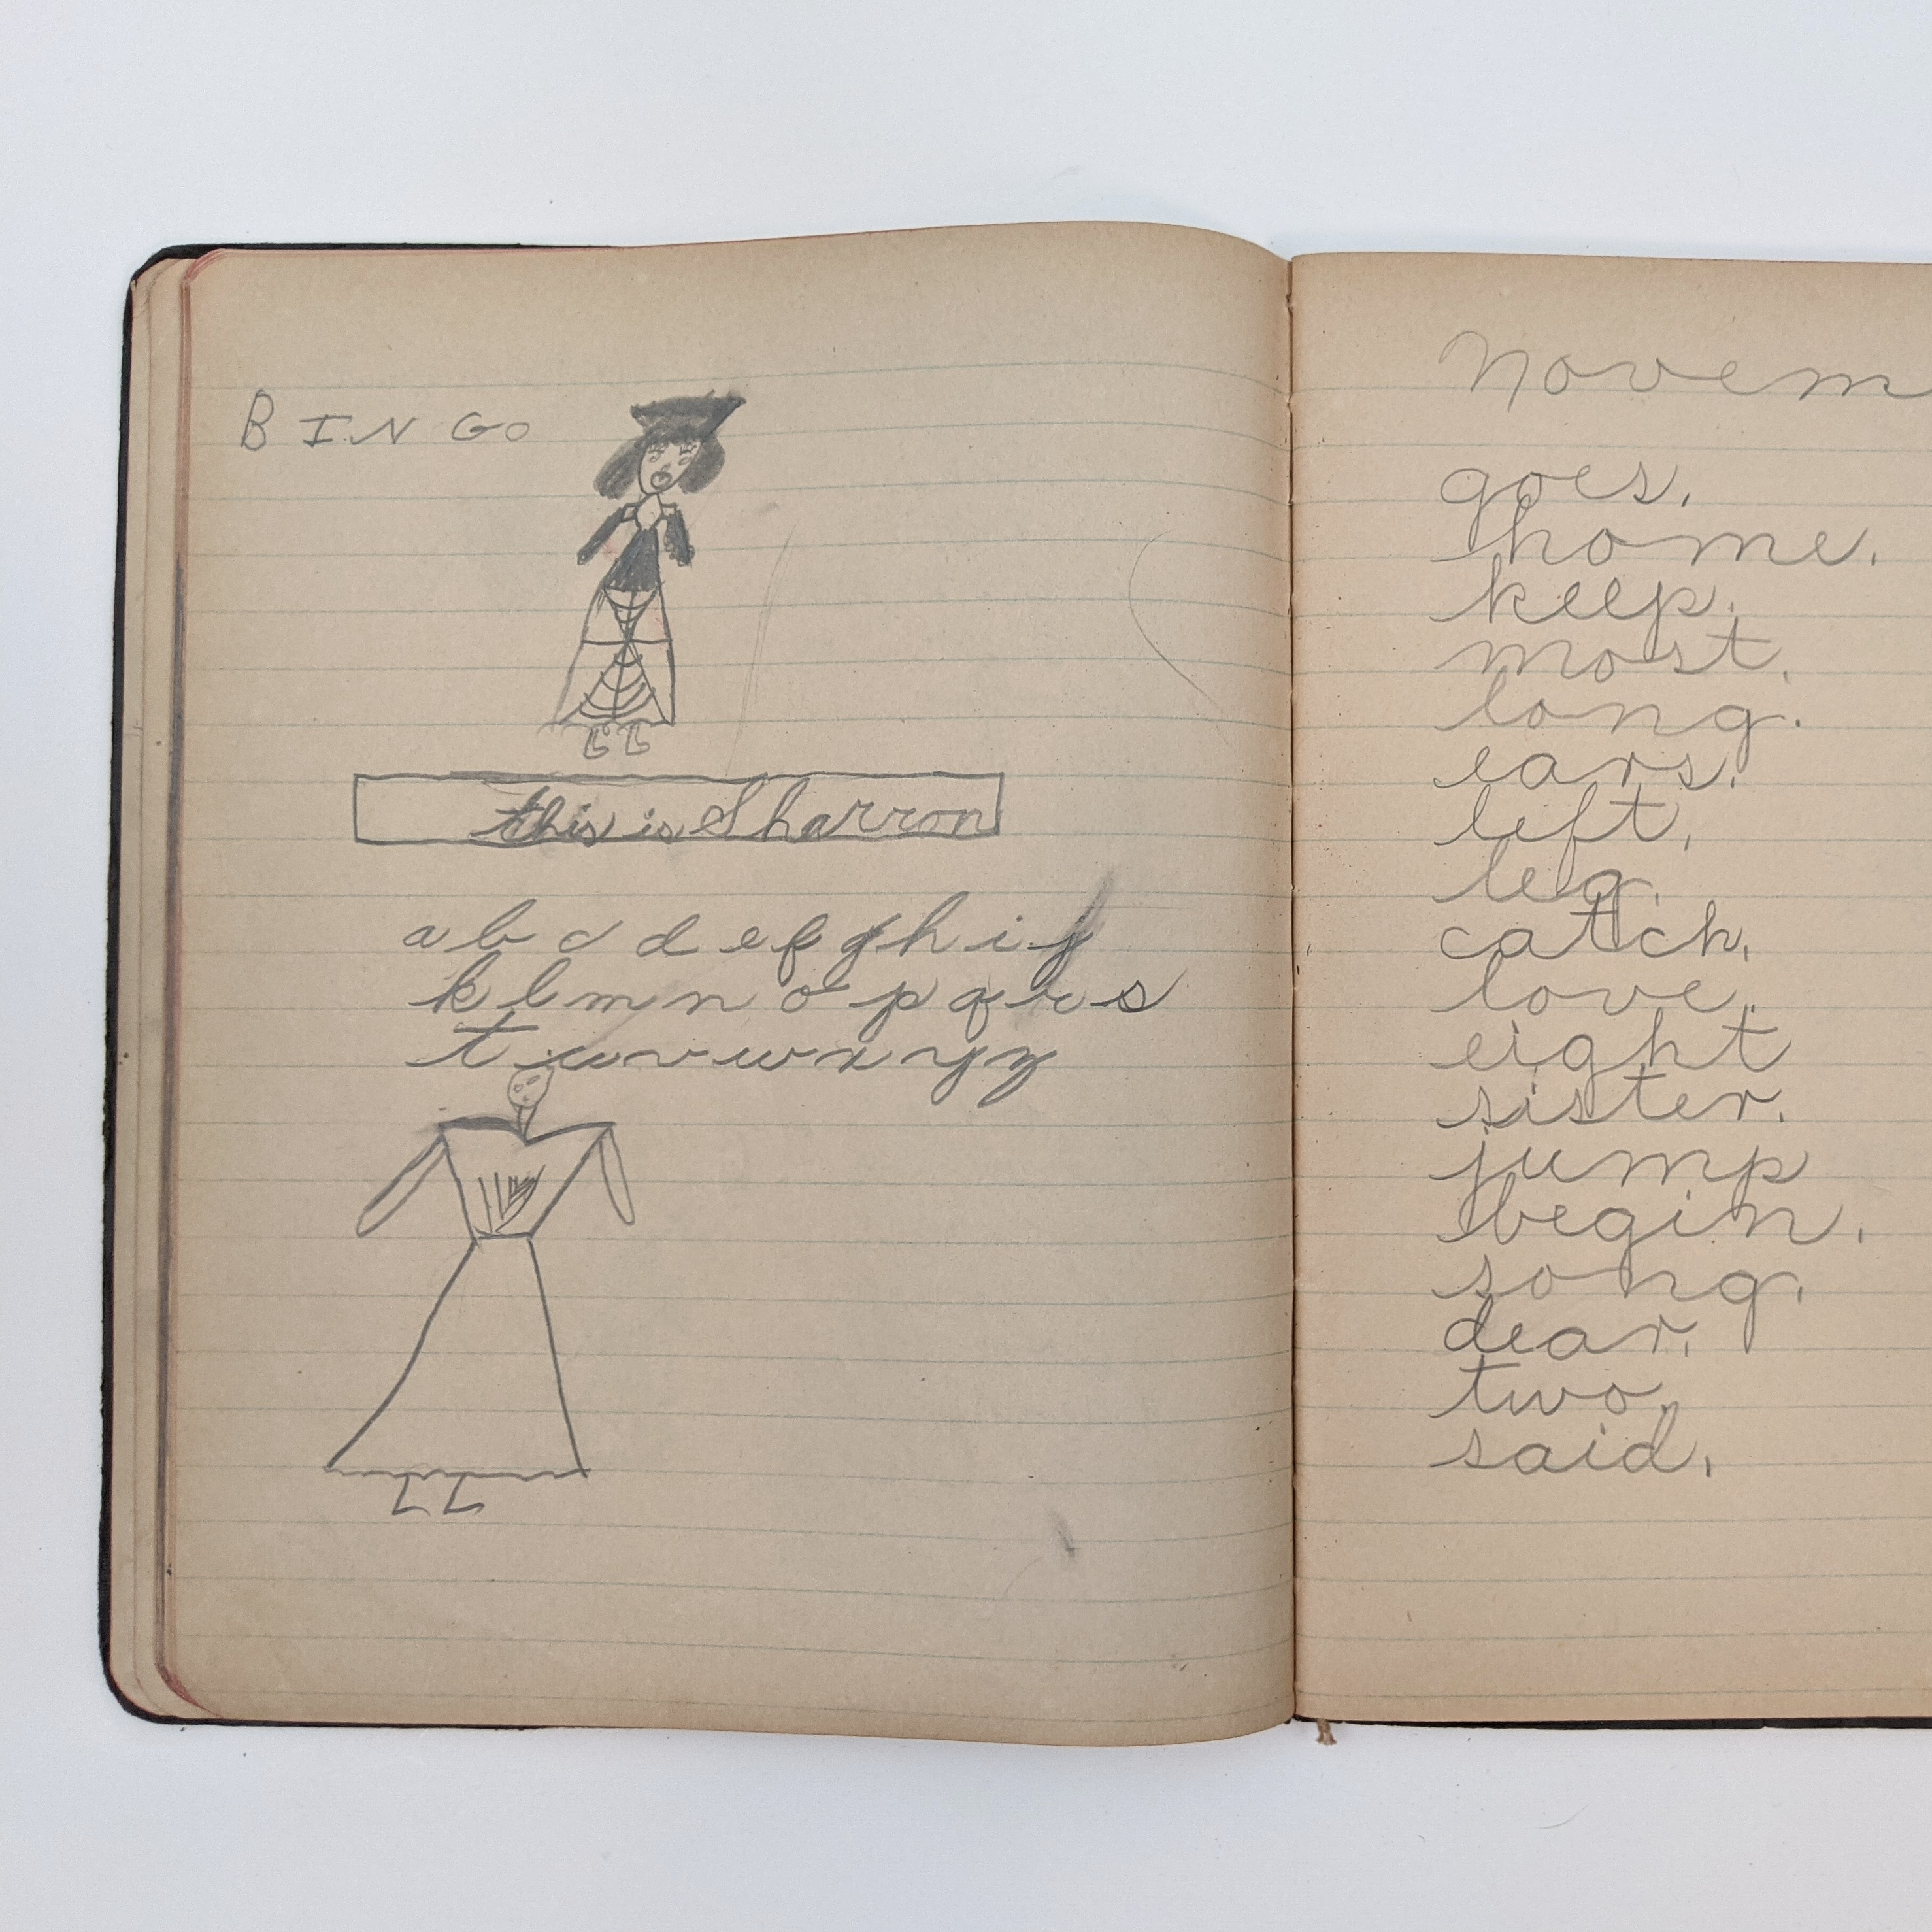 BINGO
this is Sharron
a b c d e f g h i j
k l m n o p q r s
t u v w x y z
Novem
goes.
home.
keep.
most.
long.
ears.
left.
leg.
catch.
love.
eight
sister.
jump
begin.
song.
dear.
two.
said.